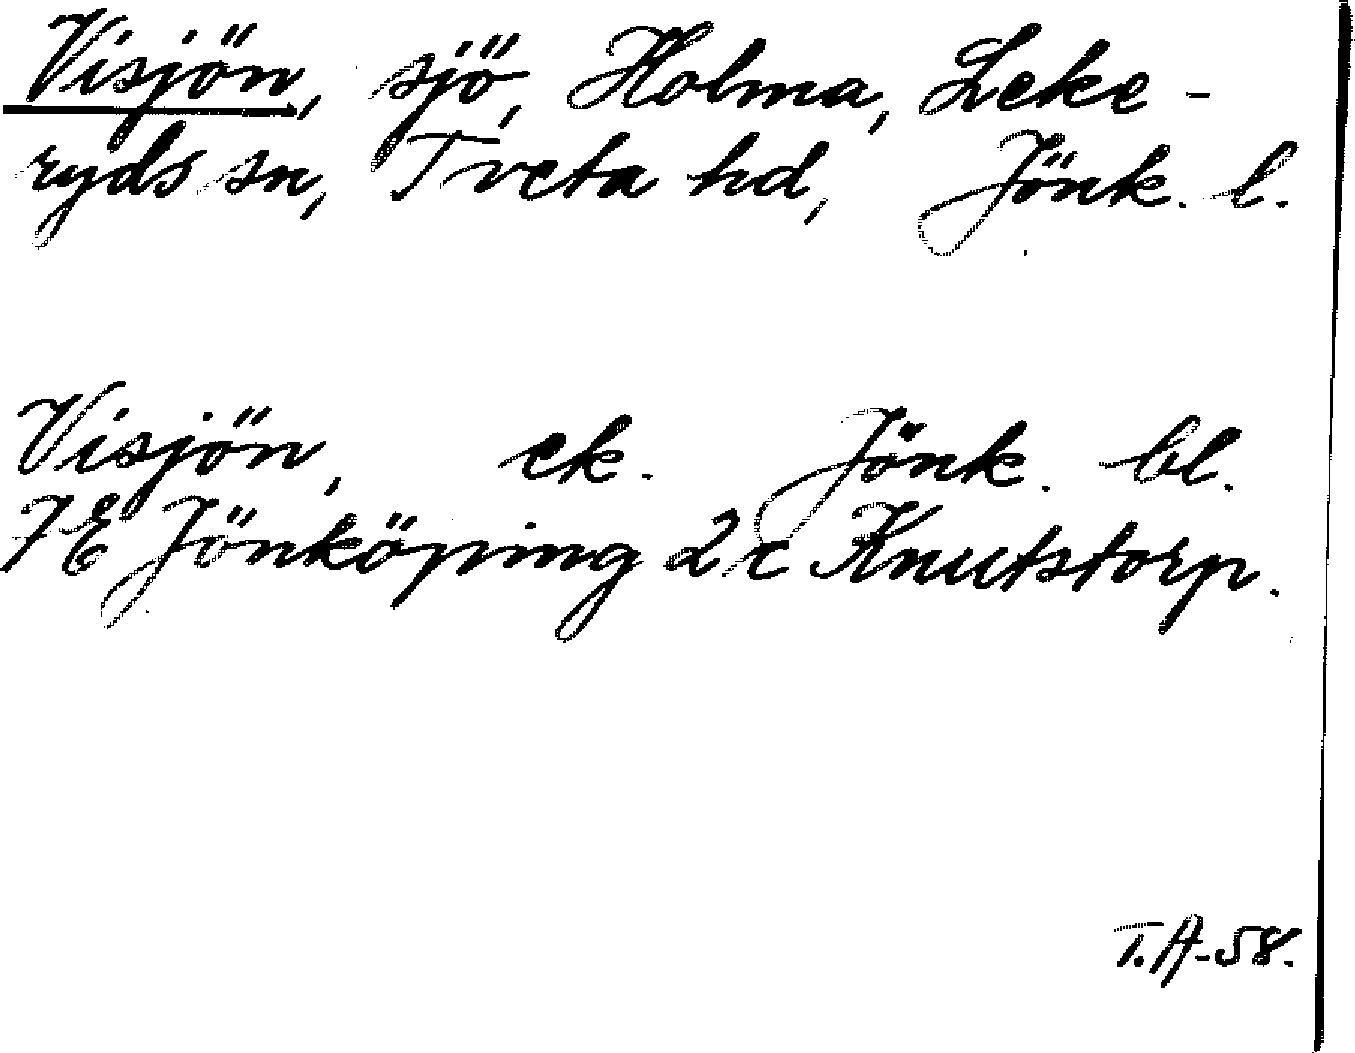 Visjön, sjö, Holma, Leke-
ryds sn, Tveta hd, Jönk. l.
Visjön, ek. Jönk. bl.
7E Jönköping 2c Knutstorp.
T.A-58.